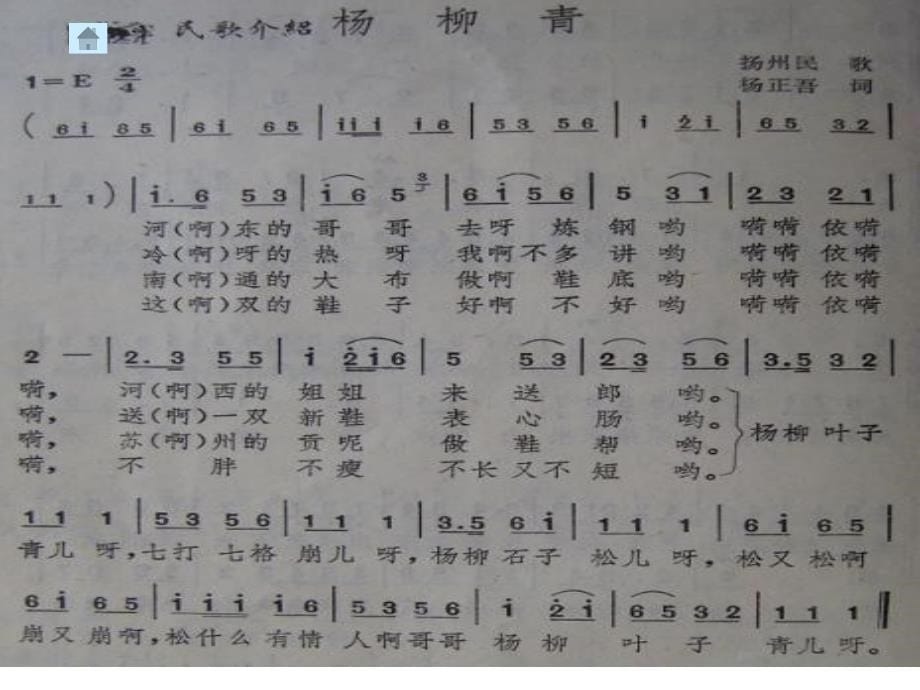 民歌介紹 杨 柳 青
1=E 2/4
扬州民 歌
杨正吾 词
( 6i 65 | 6i 65 | iii i6 | 53 56 | i 2i | 65 32 |
11 1 ) | i. 6 53 | i6 5 3 | 6i56 | 5 31 | 23 21 |
河(啊)东的 哥 哥 去呀 炼 钢 哟 嗬嗬 依嗬
冷(啊)呀的 热 呀 我啊不多 讲 哟 嗬嗬 依嗬
南(啊)通的 大 布 做啊 鞋 底 哟 嗬嗬 依嗬
这(啊)双的 鞋 子 好啊 不 好 哟 嗬嗬 依嗬
2 — | 2. 3 55 | i 2i6 | 5 53 | 23 56 | 3.5 32 |
嗬, 河(啊)西的 姐姐 来 送 郎 哟。
嗬, 送(啊)一双 新鞋 表 心 肠 哟。
杨柳 叶子
嗬, 苏(啊)州的 贡呢 做 鞋 帮 哟。
嗬, 不 胖 不 瘦 不长又不 短 哟。
11 1 | 53 56 | 11 1 | 3.5 6i | 11 1 | 6i 65 |
青儿 呀,七打 七褡 崩儿 呀,杨柳 石子 松儿 呀,松又 松啊
6i 65 | iii i6 | 5356 | i 2i | 6532 | 11 1 ‖
崩又 崩啊,松什么 有情 人啊哥哥 杨 柳 叶 子 青儿 呀。